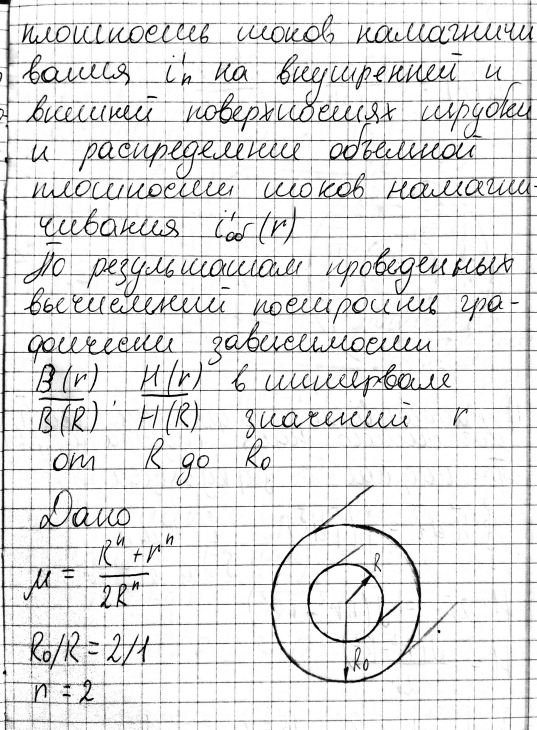 плотность токов намагничи
вания i'п на внутренней и
внешней поверхностях трубки
и распределение объемной
плотности токов намагни-
чивания i'об(r)
По результатам проведенных
вычислений построить гра-
фически зависимости
B(r)/B(R), H(r)/H(R) в интервале
значений r
от R до R₀
Дано
μ = (Rⁿ + rⁿ)/(2Rⁿ)
R₀/R = 2/1
n = 2
R
R₀